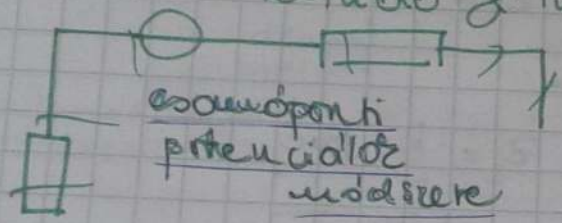 csomóponti
potenciálok
módszere